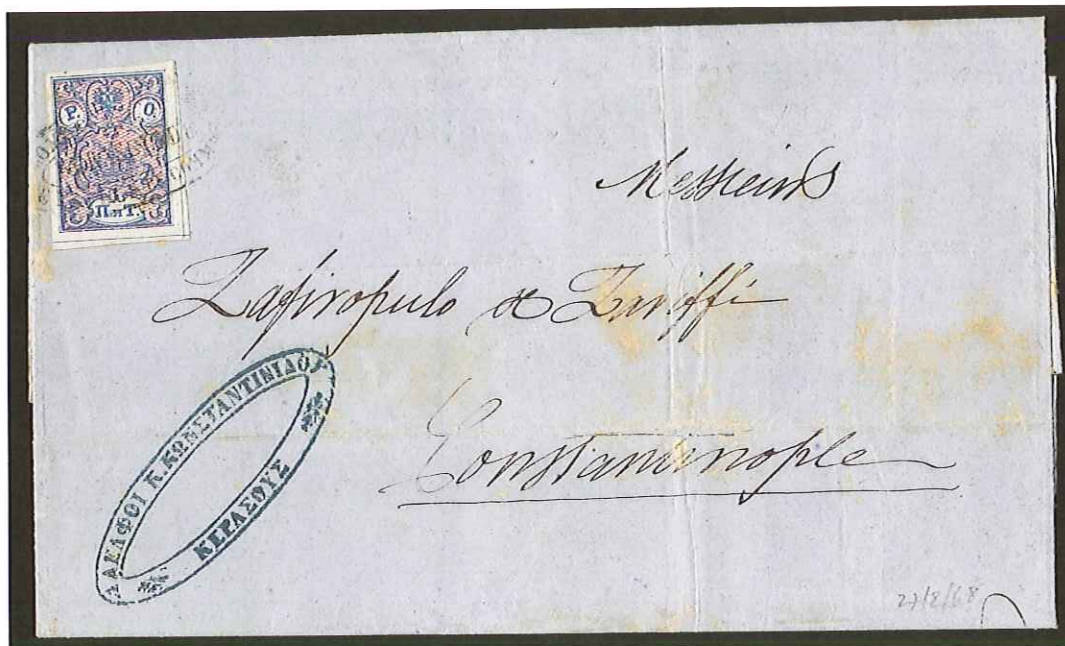 Р. О.
П и Т.
Messieurs
Zafiropulo & Zariffi
Constantinople
ΑΔΕΛΦΟΙ Κ. ΚΩΝΣΤΑΝΤΙΝΙΔΟΥ
ΚΕΡΑΣΟΥΣ
27/8/68